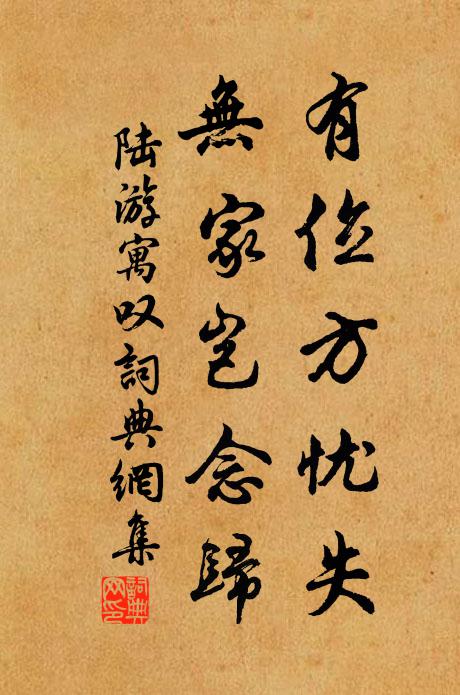 有位方忧失
無家岂念歸
陆游寓叹詞典網集
詞典網印